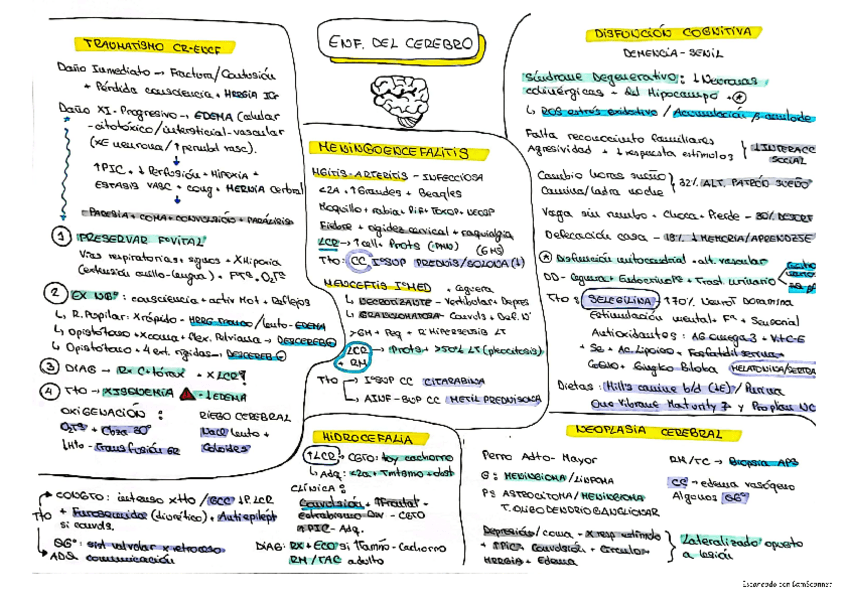 ENF. DEL CEREBRO
TRAUMATISMO CR-ENCF
Daño Inmediato → Fractura/Contusión
+ Pérdida consciencia + HERGIA IC
Daño XI. Progresivo → EDEMA (celular
-citotóxico/intersticial-vascular
(XE neurona/↑permbl vasc).
↑PIC + ↓Perfusión + Hipoxia +
ESTASIS VASC + coag + HERNIA Cerbral
PARESIA + COMA + CONVULSIÓN + PARÁLISIS
1 PRESERVAR Fº VITAL
Vías respiratorias + sgnos + XHipoxia
(extensión cuello-lengua) + O2Tª
2 EX NGº: consciencia + activ Mot + Reflejos
↳ R. Pupilar: X rápido - HRRG TRONCO/lento - EDEMA
↳ Opistótono + Xcoma + flex. Pelviana → DESCEREB
↳ Opistótono + 4 ext. rígidas → DESCEREB
3 DIAG → Rx C + tórax + XLCR
4 Tto → XISQUEMIA + ↓EDEMA
OXIGENACIÓN:
O2Tª + Cbza 30º
↓Hto - Transfusión GR
RIEGO CEREBRAL
NaCl lento +
Coloides
MENINGOENCEFALITIS
MGITIS-ARTERITIS - INFECCIOSA
<2A + ↑Grandes + Beagles
Moquillo + rabia + PIF + TOXOP + NEOSP
Fiebre + rigidez cervical + raquialgia
LCR → ↑cell + Prots (PMN)
Tto: CC IºSUP PREDNIS/SOLONA (↓)
MENCEFTIS IºMED + ceguera
↳ NECROTIZANTE - Vestibular + Depres
↳ GRANULOMATOSA - Convuls + Def. Nº
>GH + Req + R. Hipersensib LT
LCR + RM
→ Prots + >50% LT (pleocitosis)
Tto → IºSUP CC CITARABINA
↳ AINF-SUP CC METIL PREDNISOLONA
HIDROCEFALIA
↑LCR → CGTO: toy cachorro
↳ Adq: <2a + Tmtsmo + dist
CLÍNICA:
Convulsión + ↑Frontal +
estrabismo Div - CGTO
↑PIC - Adq.
DIAG: RX + ECO si ↑Tamño - Cachorro
RM/TAC adulto
Tto
→ CONGTO: intenso xtto/GCC ↓P.LCR
+ Furosemida (diurético) + Antiepilépt
si convls.
SGº: sist valvular x retroceso
ADQ comunicación
DISFUNCIÓN COGNITIVA
DEMENCIA - SENIL
Síndrome Degenerativo: ↓Neuronas
colinérgicas + del Hipocampo +
↳ ROS estrés oxidativo / Acumulación β amiloide
Falta reconocimto familiares
Agresividad + ↓respuesta estímulos
↓INTERACC
SOCIAL
Cambio horas sueño
Camina/ladra noche
32% ALT. PATRÓN SUEÑO
Vaga sin rumbo + Choca + Pierde - 80% DESORT
Defecación casa - 18% ↓MEMORIA/APRENDZSE
Disfunción mitocondrial + alt. vascular
DD - Ceguera + EndocrinoPª + Trast. urinario
Tto: SELEGILINA ↑70% NeuroT Dopamina
Estimulación mental + Fª + Sensorial
Antioxidantes: AG omega 3 + Vit C-E
+ Se + Ac. Lipoico + Fosfatidil serina +
Gingko Biloba MELATONINA/SERTRA
Dietas: Hill's canine b/d (↓E) / Purina
One Vibrant Maturity 7 y Proplan NC
NEOPLASIA CEREBRAL
Perro Adto - Mayor
G: MENINGIOMA/LINFOMA
P: ASTROCITOMA/MENINGIOMA
T. OLIGODENDRIO GANGLIONAR
RM/TC → Biopsia APª
CC → edema vasógeno
Algunos SGº
Depresión/coma + X resp estímulo
+ ↑PIC + Convulsión + Circulos +
HERGIA + Edema
Lateralizado opuesto
a lesión
Escaneado con CamScanner